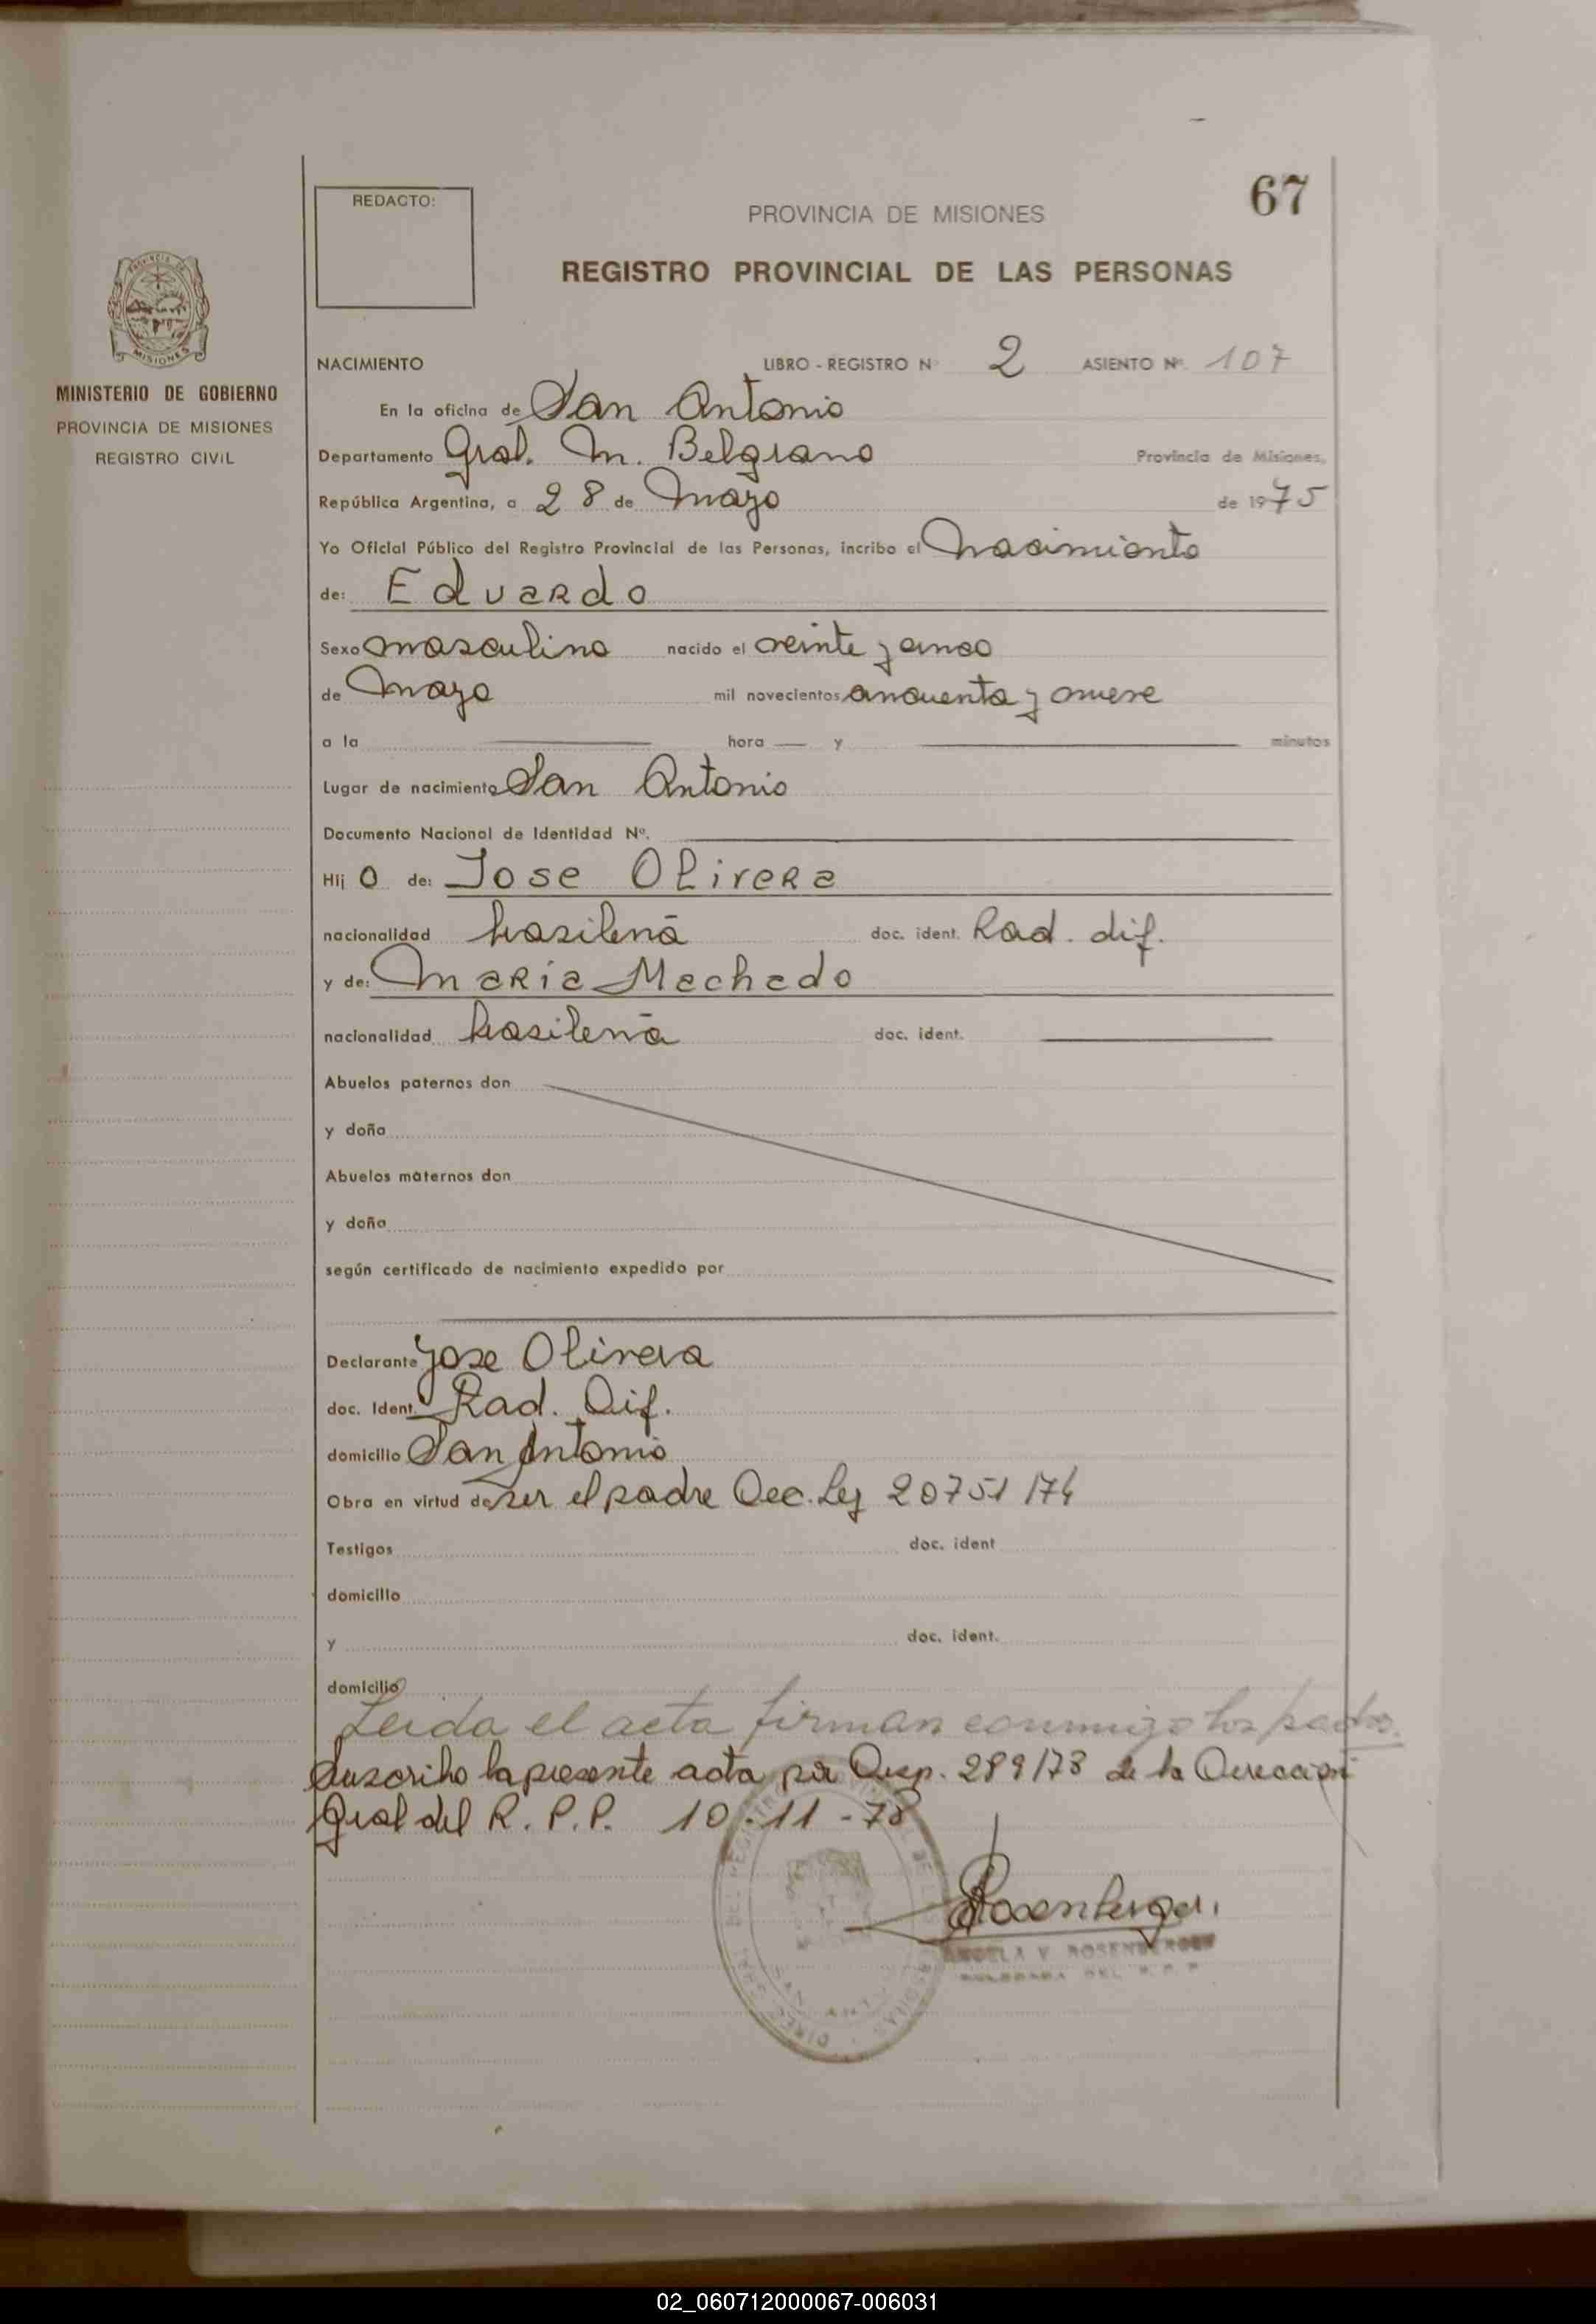 67
REDACTO:
PROVINCIA DE MISIONES
REGISTRO PROVINCIAL DE LAS PERSONAS
MISIONES
MINISTERIO DE GOBIERNO
PROVINCIA DE MISIONES
REGISTRO CIVIL
NACIMIENTO LIBRO - REGISTRO Nº 2 ASIENTO Nº 107
En la oficina de San Antonio
Departamento Gral. M. Belgrano Provincia de Misiones,
República Argentina, a 28 de Mayo de 1975
Yo Oficial Público del Registro Provincial de las Personas, incribo el Nacimiento
de: Eduardo
Sexo masculino nacido el veinte y cinco
de Mayo mil novecientos cincuenta y nueve
a la hora y minutos
Lugar de nacimiento San Antonio
Documento Nacional de Identidad Nº.
Hij o de: Jose Olivera
nacionalidad brasilenã doc. ident. Rad. dif.
y de: Maria Machado
nacionalidad brasilenã doc. ident.
Abuelos paternos don
y doña
Abuelos maternos don
y doña
según certificado de nacimiento expedido por
Declarante Jose Olivera
doc. Ident. Rad. Dif.
domicilio San Antonio
Obra en virtud de ser el padre Dec. Ley 20751/74
Testigos doc. ident
domicilio
y doc. ident.
domicilio
Leida el acta firman conmigo los padres.
Suscribo la presente acta por Disp. 289/78 de la Dirección
Gral del R. P. P. 10-11-78
Rosenberger
ANGELA V. ROSENBERGER
DEL R. P. P.
02_060712000067-006031